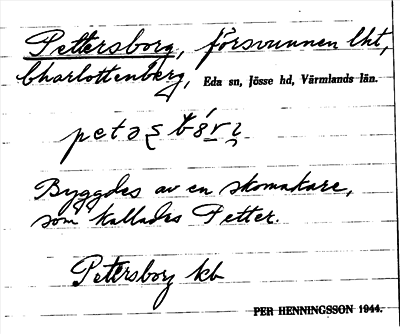 Pettersborg, försvunnen lht,
Charlottenberg, Eda sn, Jösse hd, Värmlands län.
Byggdes av en skomakare,
som kallades Petter.
Petersborg kb
PER HENNINGSSON 1944.